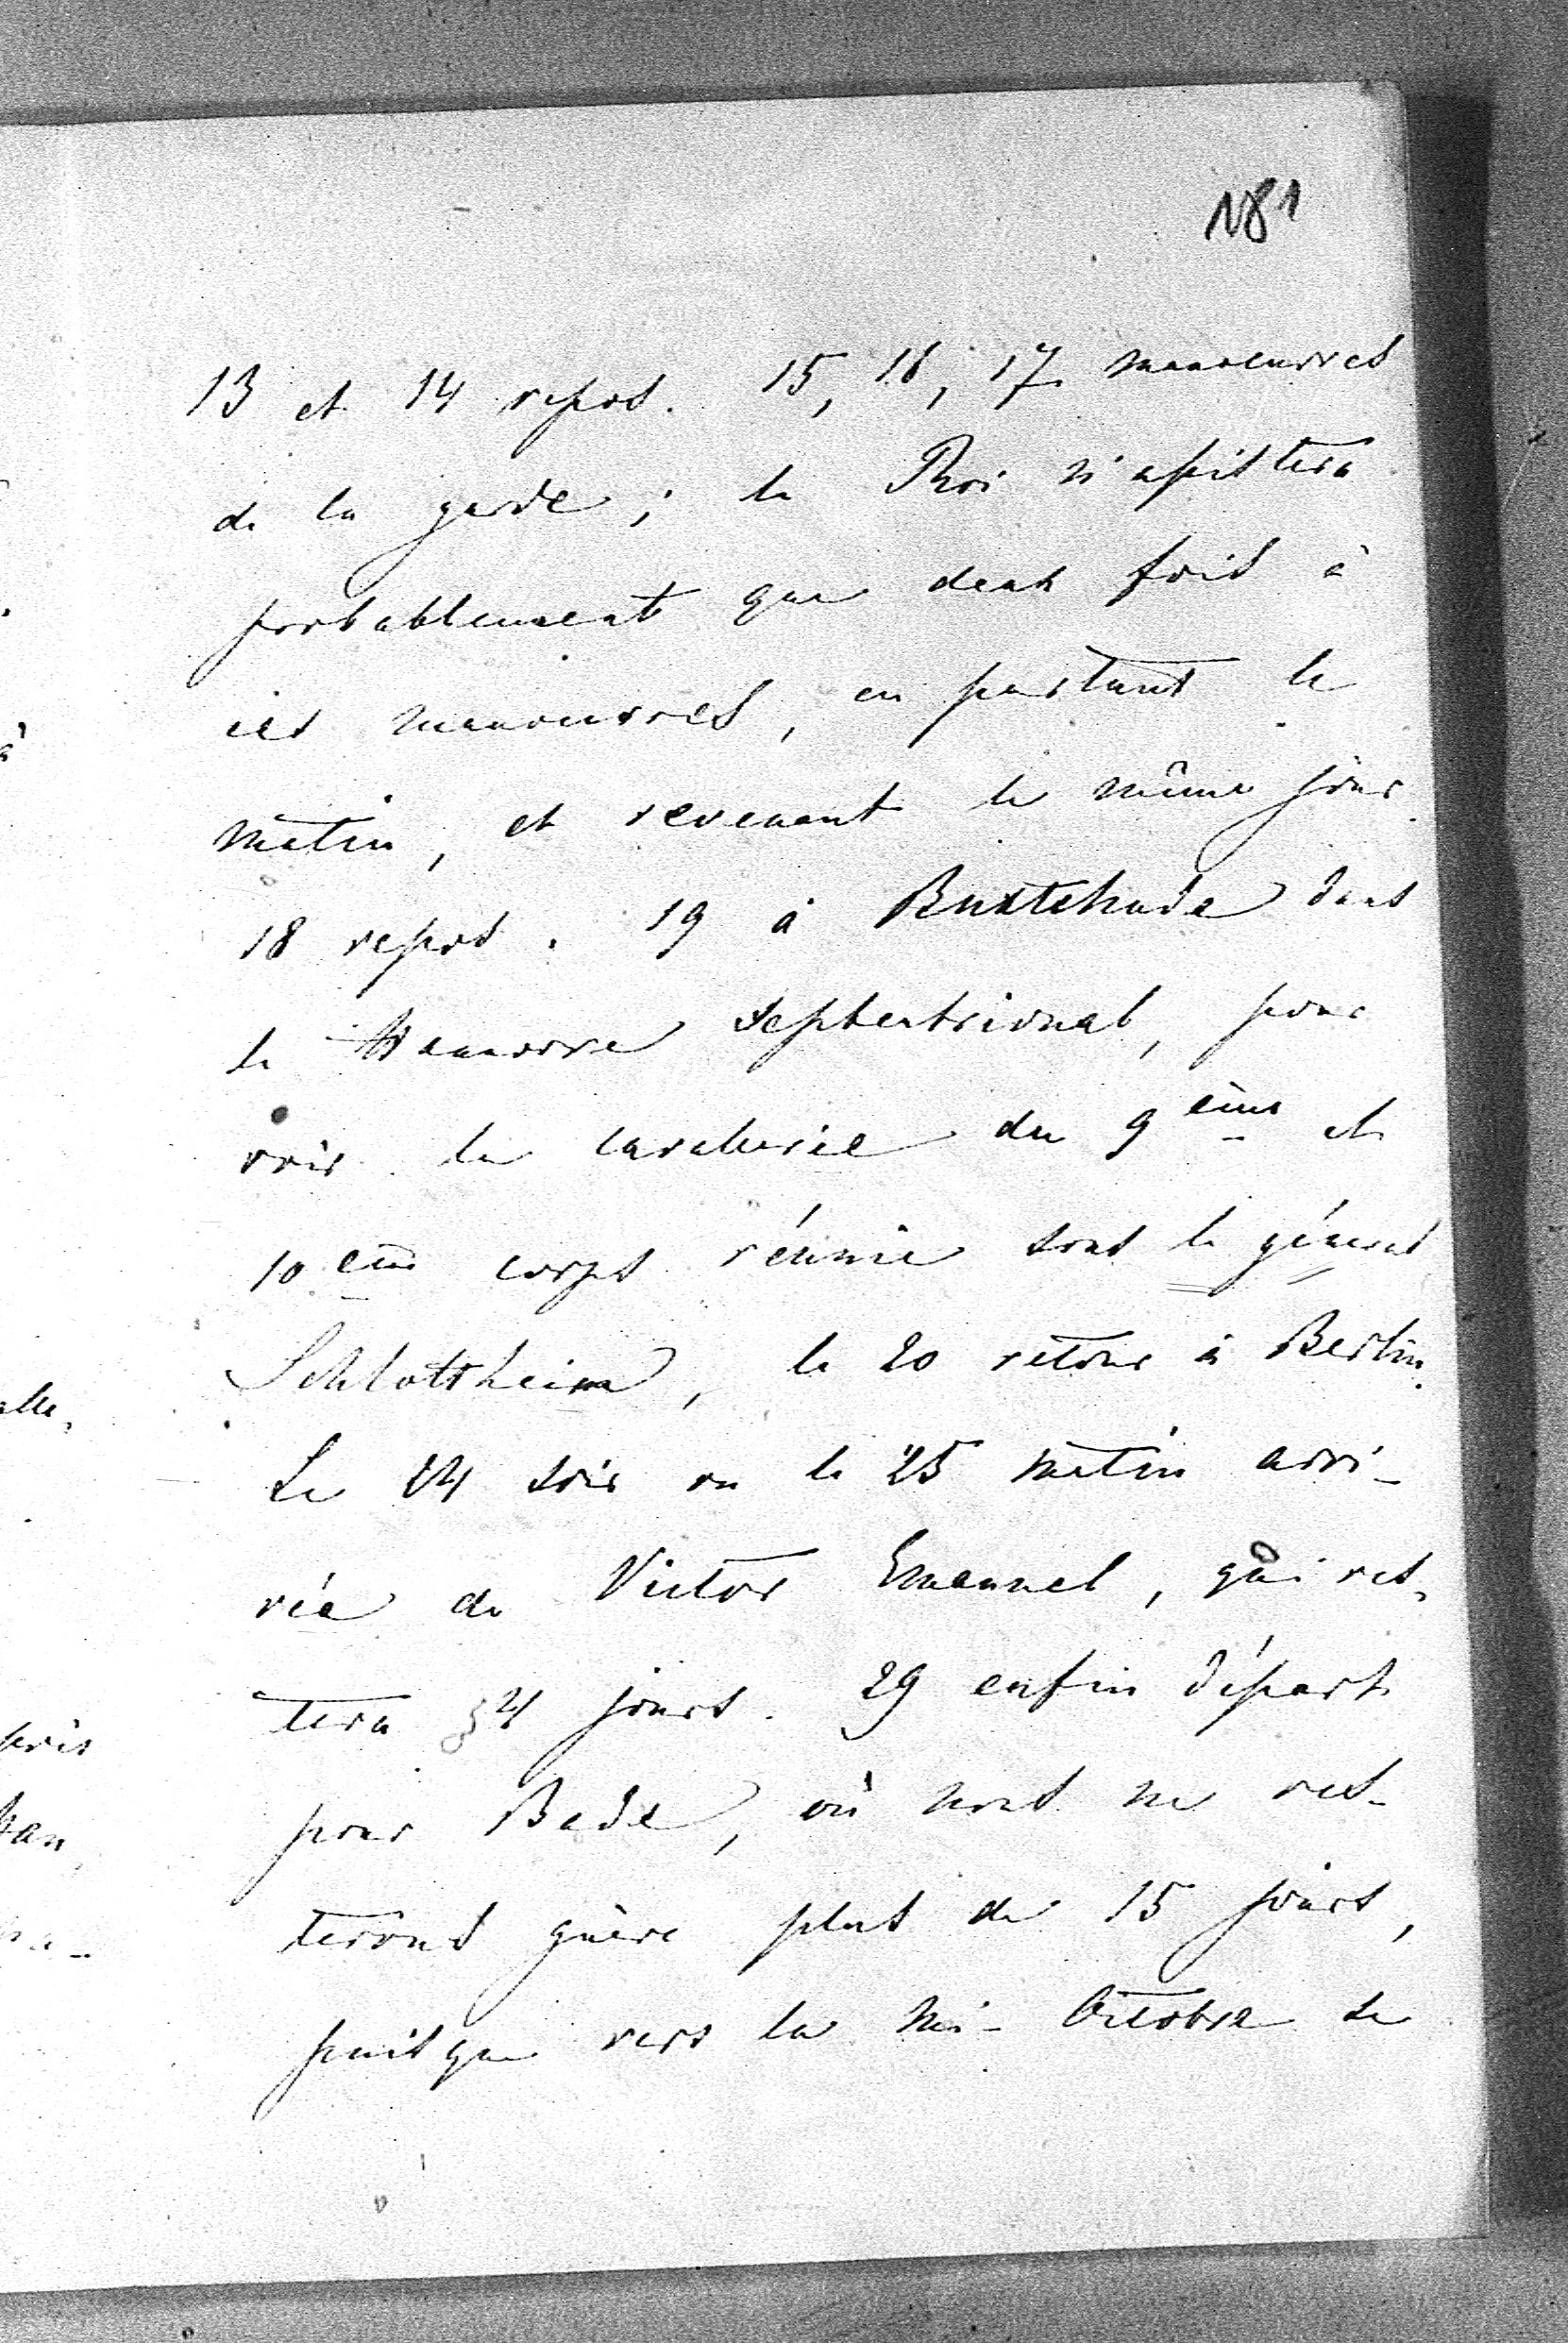 181
13 et 14 repos. 15, 16, 17 manoeuvres
de la garde; le Roi n'assistera
probablement que deux fois à
ces manoeuvres, en partant le
matin, et revenant le même jour.
18 repos. 19 à Buxtehude dans
le Hannovre septentrional, pour
voir la cavallerie du 9 ème et
10 ème corps réunie sous le général
Schlottheim, le 20 retour à Berlin.
Le 24 soir ou le 25 matin arri-
vée de Victor Emanuel, qui res-
tera 4 jours. 29 enfin départ
pour Bade, où nous ne res-
terons guère plus de 15 jours,
puisque vers la mi-Octobre le